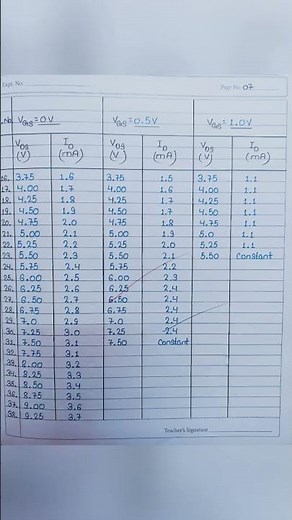 Expt. No. Page No. 07
No. VGS=0V VGS=0.5V VGS=1.0V
VDS (V) ID (mA) VDS (V) ID (mA) VDS (V) ID (mA)
16. 3.75 1.6 3.75 1.5 3.75 1.1
17. 4.00 1.7 4.00 1.6 4.00 1.1
18. 4.25 1.8 4.25 1.7 4.25 1.1
19. 4.50 1.9 4.50 1.7 4.50 1.1
20. 4.75 2.0 4.75 1.8 4.75 1.1
21. 5.00 2.1 5.00 1.9 5.0 1.1
22. 5.25 2.2 5.25 2.0 5.25 1.1
23. 5.50 2.3 5.50 2.1 5.50 Constant
24. 5.75 2.4 5.75 2.2
25. 6.00 2.5 6.00 2.3
26. 6.25 2.6 6.25 2.4
27. 6.50 2.7 6.50 2.4
28. 6.75 2.8 6.75 2.4
29. 7.0 2.9 7.0 2.4
30. 7.25 3.0 7.25 2.4
31. 7.50 3.1 7.50 Constant
32. 7.75 3.1
33. 8.00 3.2
34. 8.25 3.3
35. 8.50 3.4
36. 8.75 3.5
37. 9.00 3.6
38. 9.25 3.7
Teacher's Signature